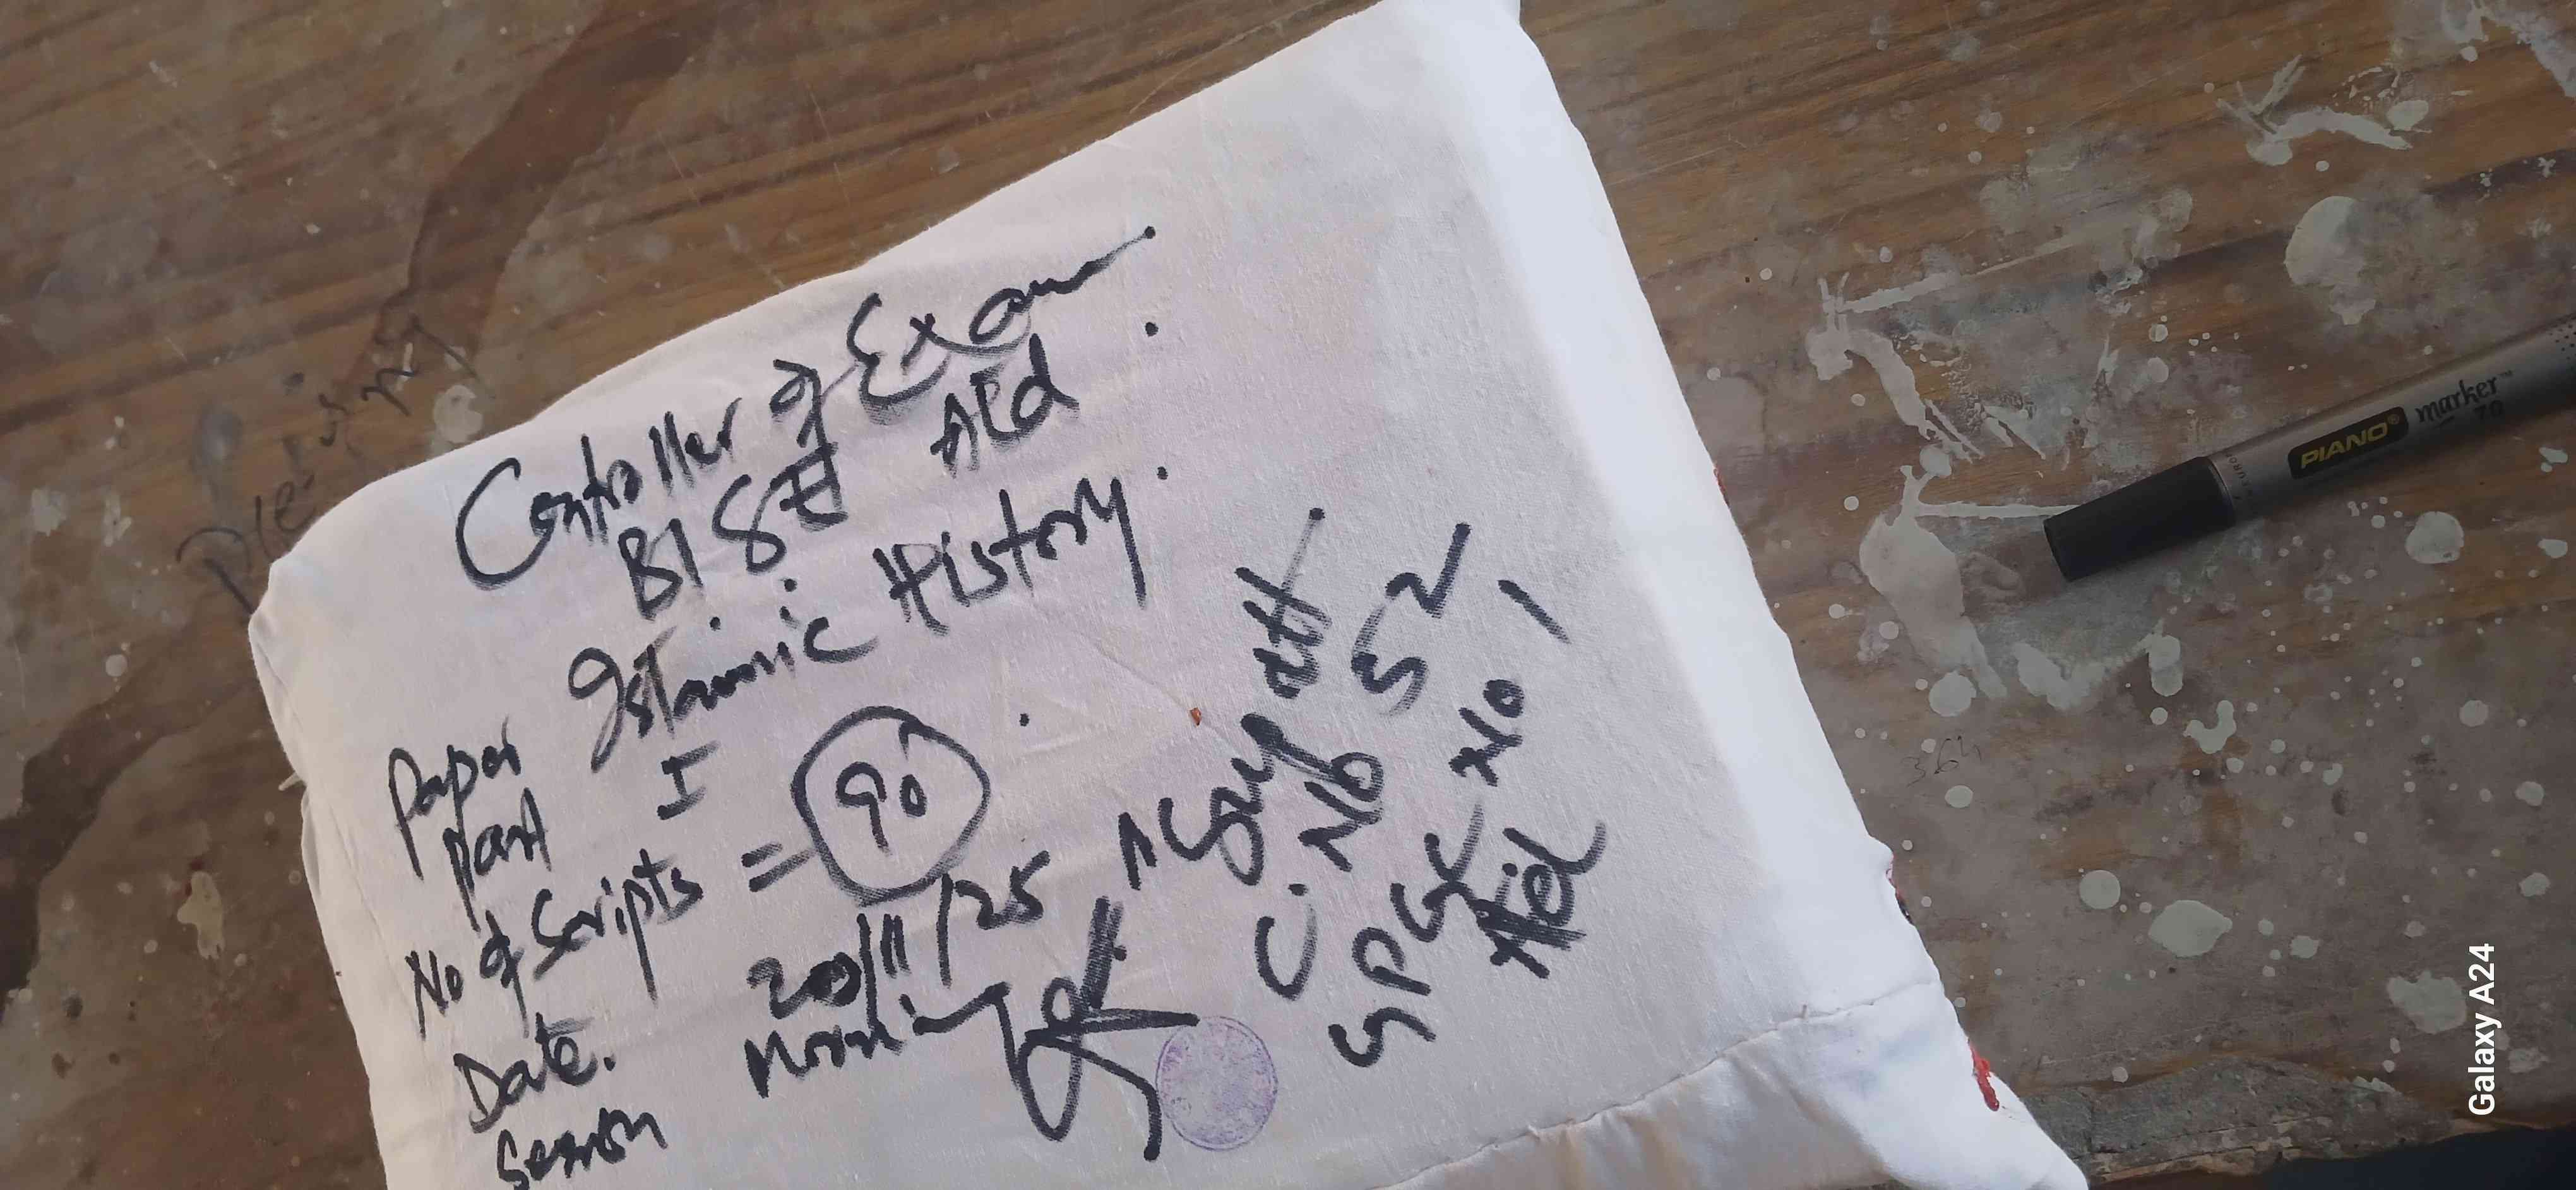 Controller of Exam.
BISE Atd.
Paper Islamic History.
Part I
No of Scripts = 90.
Date. 20/11/25
Session Morning
C. No 52
GPGC No 1
Atd
PIANO® marker™
70
Galaxy A24